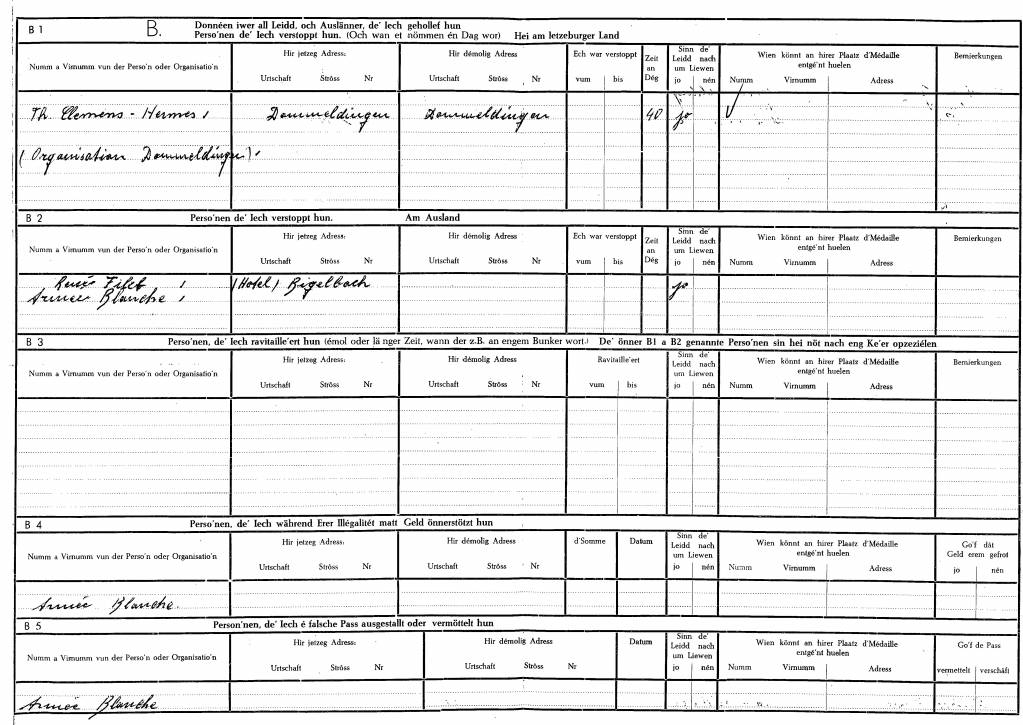 B 1 B. Donnéen iwer all Leidd, och Auslänner, de' Iech gehollef hun
Perso'nen de' Iech verstoppt hun. (Och wan et nömmen én Dag wor) Hei am letzeburger Land
Numm a Virnumm vun der Perso'n oder Organisatio'n Hir jetzeg Adress: Hir démolig Adress Ech war verstoppt Zeit an Dég Sinn de' Leidd nach um Liewen Wien könnt an hirer Plaatz d'Médaille entgé'nt huelen Bemierkungen
Urtschaft Ströss Nr Urtschaft Ströss Nr vum bis jo nén Numm Virnumm Adress
Th. Clemens - Hermes Dommeldingen Dommeldingen 40 jo
(Organisation Dommeldingen)
B 2 Perso'nen de' Iech verstoppt hun. Am Ausland
Numm a Virnumm vun der Perso'n oder Organisatio'n Hir jetzeg Adress: Hir démolig Adress Ech war verstoppt Zeit an Dég Sinn de' Leidd nach um Liewen Wien könnt an hirer Plaatz d'Médaille entgé'nt huelen Bemierkungen
Urtschaft Ströss Nr Urtschaft Ströss Nr vum bis jo nén Numm Virnumm Adress
(Hotel) Bigelbach jo
Armée Blanche
B 3 Perso'nen, de' Iech ravitaille'ert hun (émol oder länger Zeit, wann der z.B. an engem Bunker wort.) De' önner B1 a B2 genannte Perso'nen sin hei nöt nach eng Ke'er opzeziélen
Numm a Virnumm vun der Perso'n oder Organisatio'n Hir jetzeg Adress: Hir démolig Adress Ravitaille'ert Sinn de' Leidd nach um Liewen Wien könnt an hirer Plaatz d'Médaille entgé'nt huelen Bemierkungen
Urtschaft Ströss Nr Urtschaft Ströss Nr vum bis jo nén Numm Virnumm Adress
B 4 Perso'nen, de' Iech während Erer Illégalitét matt Geld önnerstötzt hun
Numm a Virnumm vun der Perso'n oder Organisatio'n Hir jetzeg Adress: Hir démolig Adress d'Somme Datum Sinn de' Leidd nach um Liewen Wien könnt an hirer Plaatz d'Médaille entgé'nt huelen Go'f dât Geld erem gefrot
Urtschaft Ströss Nr Urtschaft Ströss Nr jo nén Numm Virnumm Adress jo nén
Armée Blanche.
B 5 Person'nen, de' Iech é falsche Pass ausgestallt oder vermöttelt hun
Numm a Virnumm vun der Perso'n oder Organisatio'n Hir jetzeg Adress: Hir démolig Adress Datum Sinn de' Leidd nach um Liewen Wien könnt an hirer Plaatz d'Médaille entgé'nt huelen Go'f de Pass
Urtschaft Ströss Nr Urtschaft Ströss Nr jo nén Numm Virnumm Adress vermettelt verschâft
Armée Blanche